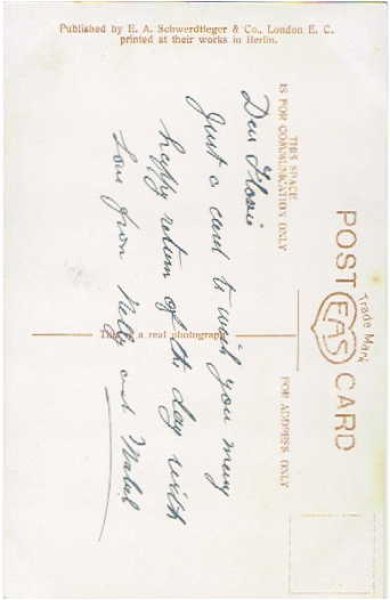 Published by E. A. Schwerdtfeger & Co., London E. C.
printed at their works in Berlin.
POST CARD
Trade Mark
EAS
THIS SPACE
IS FOR COMMUNICATION ONLY
FOR ADDRESS ONLY
This is a real photograph
Dear Flossie
Just a card to wish you many
happy return of the day with
Love from Nelly and Mabel